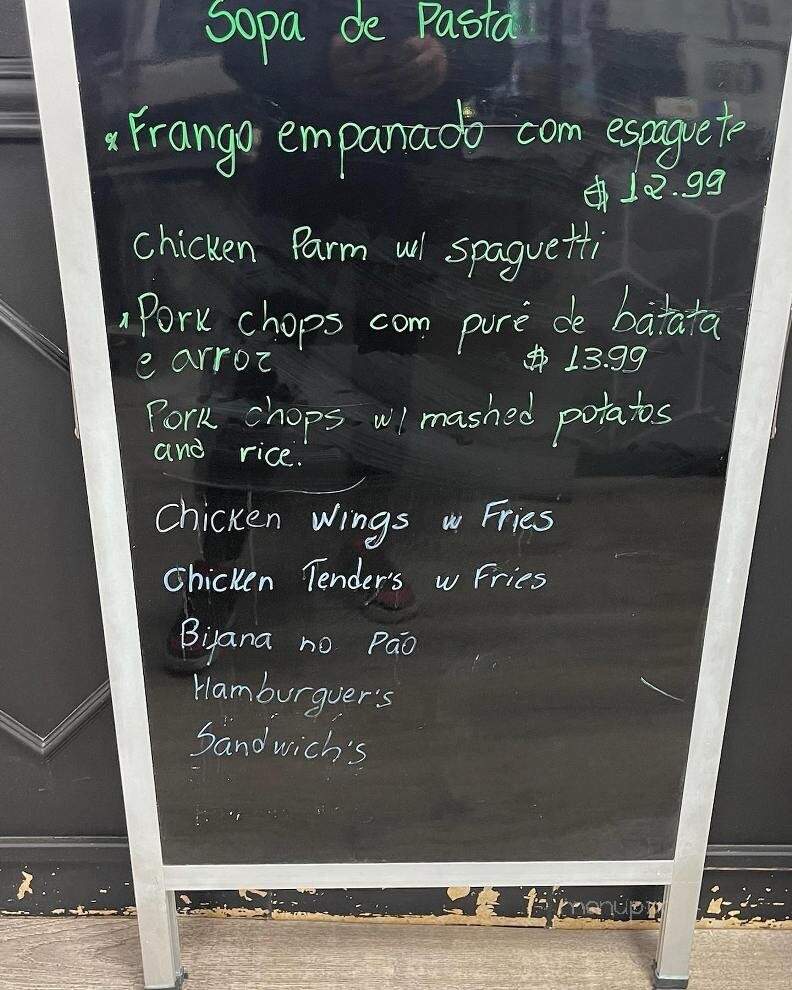 Sopa de Pasta
* Frango empanado com espaguete
$ 12.99
Chicken Parm w/ spaguetti
* Pork chops com purê de batata
e arroz $ 13.99
Pork chops w/ mashed potatos
and rice.
Chicken Wings w Fries
Chicken Tender's w Fries
Bifana no Pão
Hamburguer's
Sandwich's
menupix